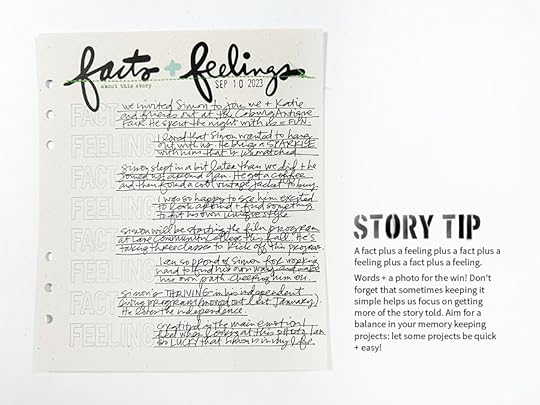 facts + feelings
about this story
SEP 10 2023
FACT we invited Simon to join me + Katie
and friends out at the Coburg Antique
Fair. He spent the night with us = FUN.
FEELING I loved that Simon wanted to hang
out with us. He brings a SPARKLE
with him that is unmatched.
FACT Simon slept in a bit later than we did + he
joined us around 9am. He got a coffee
and then found a cool vintage jacket to buy.
FEELING I was so happy to see him excited
to look around + find something
to fit his own unique style.
FACT Simon will be starting the film program
at Lane Community College this fall. He's
taking three classes to kick off this program.
FEELING I am so proud of Simon for working
hard to find his own way and make
his own path. Cheering him on.
FACT Simon is THRIVING in his independent
living program (moved out last January).
He loves the independence.
FEELING Gratitude is the main emotion I
feel when I look at this photo. I am
so LUCKY that Simon is in my life.
STORY TIP
A fact plus a feeling plus a fact plus a
feeling plus a fact plus a feeling.
Words + a photo for the win! Don't
forget that sometimes keeping it
simple helps us focus on getting
more of the story told. Aim for a
balance in your memory keeping
projects: let some projects be quick
+ easy!